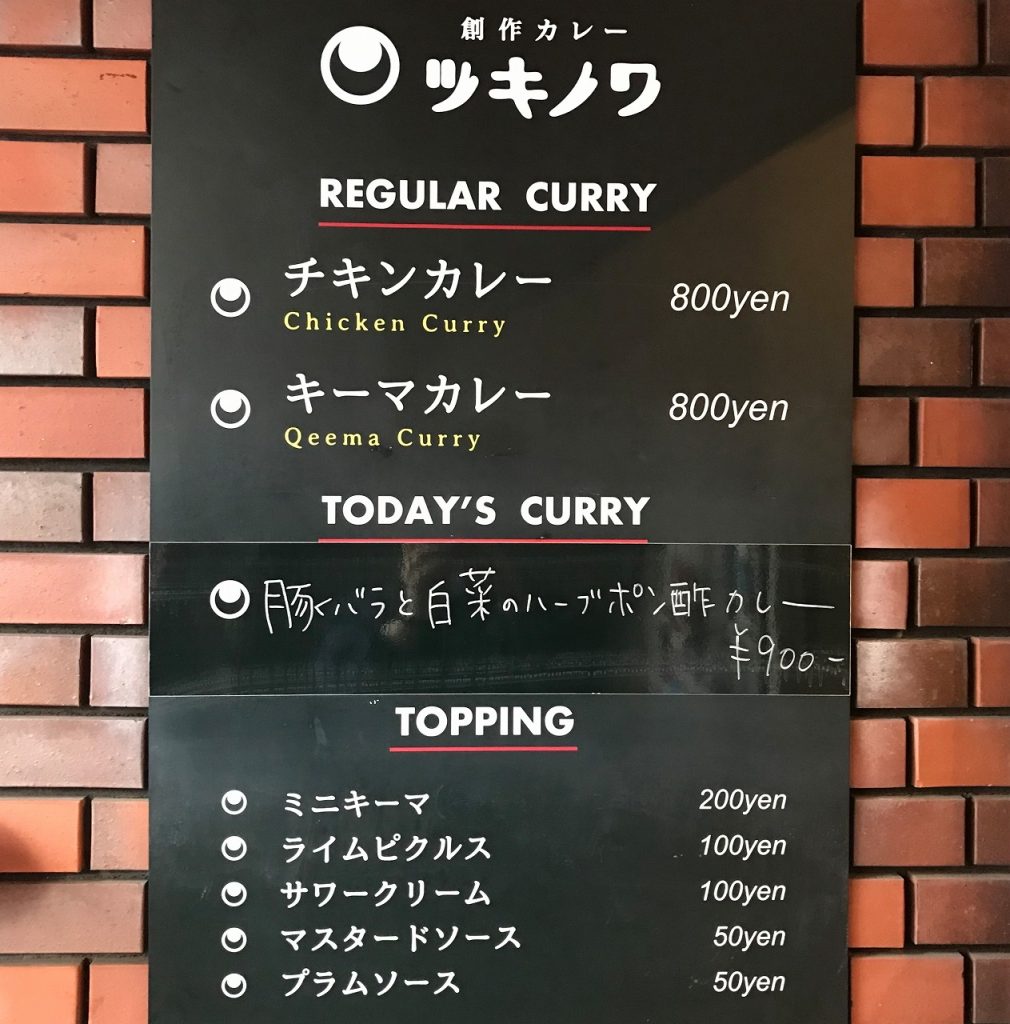 創作カレー
ツキノワ
REGULAR CURRY
チキンカレー 800yen
Chicken Curry
キーマカレー 800yen
Qeema Curry
TODAY'S CURRY
豚バラと白菜のハーブポン酢カレー
¥900-
TOPPING
ミニキーマ 200yen
ライムピクルス 100yen
サワークリーム 100yen
マスタードソース 50yen
プラムソース 50yen